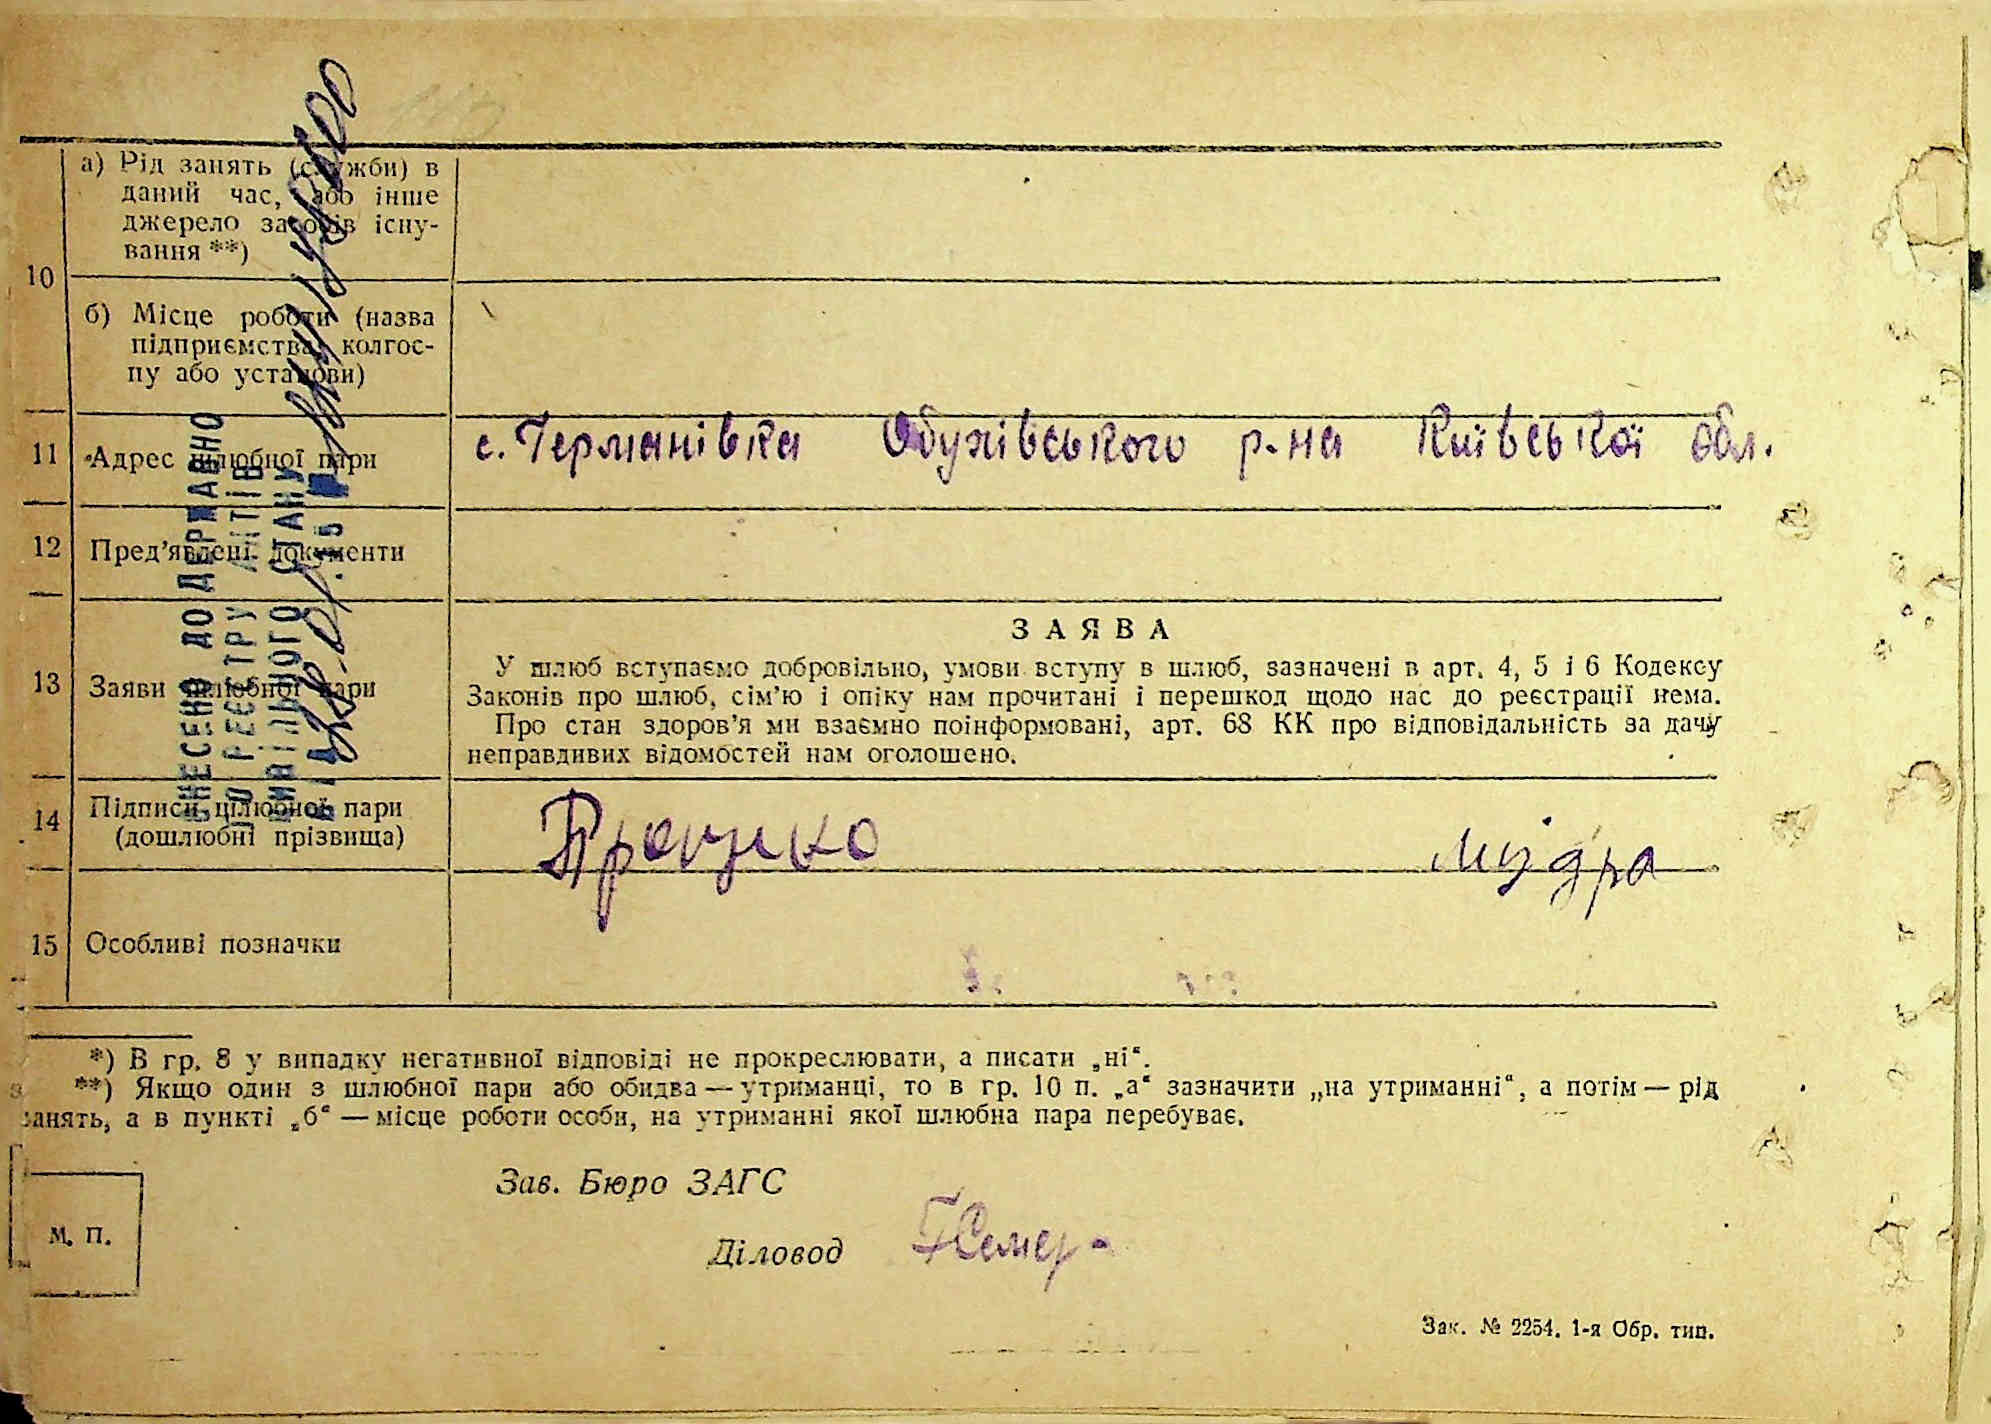 10
а) Рід занять (служби) в
даний час, або інше
джерело засобів існу-
вання **)
б) Місце роботи (назва
підприємства, колгос-
пу або установи)
11 Адрес шлюбної пари
с. Германівка Обухівського р-на Київської обл.
12 Пред’явлені документи
13 Заяви шлюбної пари
ЗАЯВА
У шлюб вступаємо добровільно, умови вступу в шлюб, зазначені в арт. 4, 5 і 6 Кодексу
Законів про шлюб, сім’ю і опіку нам прочитані і перешкод щодо нас до реєстрації нема.
Про стан здоров’я ми взаємно поінформовані, арт. 68 КК про відповідальність за дачу
неправдивих відомостей нам оголошено.
14 Підписи шлюбної пари
(дошлюбні прізвища)
Процико Мудра
15 Особливі позначки
ВНЕСЕНО ДО ДЕРЖАВНОГО
РЕЄСТРУ АКТІВ
ЦИВІЛЬНОГО СТАНУ
*) В гр. 8 у випадку негативної відповіді не прокреслювати, а писати „ні“.
**) Якщо один з шлюбної пари або обидва — утриманці, то в гр. 10 п. „а“ зазначити „на утриманні“, а потім — рід
занять, а в пункті „б“ — місце роботи особи, на утриманні якої шлюбна пара перебуває.
Зав. Бюро ЗАГС
М. П.
Діловод
Зак. № 2254. 1-я Обр. тип.